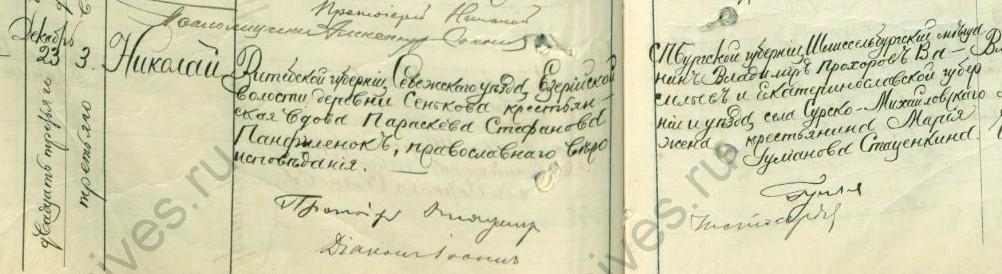 Протоіерей Николай
Декабрь
23 3.
двадцать третьяго
третьяго
Николай
Витебской губерніи, Себежскаго уезда, Езерійской
волости, деревни Сенькова крестьян-
ская вдова Параскева Стефанова
Панфиленокъ, православнаго веро
исповеданія.
Діаконъ Іоаннъ
СПбургской губерніи, Шлиссельбургский меща
нинъ Владиміръ Прохоровъ Ва-
сильевъ и Екатеринославской губер
ніи и уезда, села Сурско-Михайловскаго
жена крестьянина Марія
Гуліанова Стаценкина.
ives.ru
ives.ru